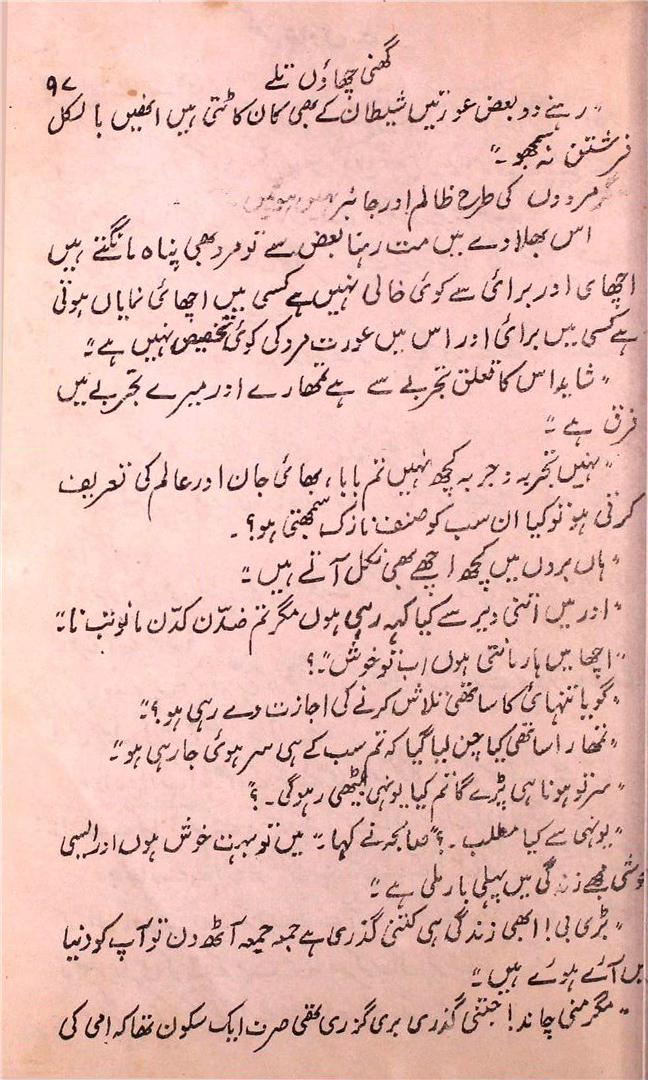 گھنی چھاؤں تلے
۹۷
"رہنے دو بعض عورتیں شیطان کے بھی کان کاٹتی ہیں انھیں بالکل
فرشتن نہ سمجھو۔"
مگر مردوں کی طرح ظالم اور جابر نہیں ہوتیں
اس بھلاوے میں مت رہنا بعض سے تو مرد بھی پناہ مانگتے ہیں
اچھای اور برائی سے کوئی خالی نہیں ہے کسی میں اچھائی نمایاں ہوتی
ہے کسی میں برائی اور اس میں عورت مرد کی کوئی تخصیص نہیں ہے۔"
"شاید اس کا تعلق تجربے سے ہے تمھارے اور میرے تجربے میں
فرق ہے۔"
"نہیں تجربہ وجربہ کچھ نہیں تم بابا، بھائی جان اور عالم کی تعریف
کرتی ہو تو کیا ان سب کو صنف نازک سمجھتی ہو؟۔
"ہاں بروں میں کچھ اچھے بھی نکل آتے ہیں۔"
"اور میں اتنی دیر سے کیا کہہ رہی ہوں مگر تم ضدّن کدّن مانو تب نا۔"
"اچھا میں ہار مانتی ہوں اب تو خوش"۔؟
"گویا تنہائی کا ساتھی تلاش کرنے کی اجازت دے رہی ہو؟"۔
"تمھارا ساتھی کیا چن لیا گیا کہ تم سب کے ہی سر ہوئی جا رہی ہو"۔
"سر تو ہونا ہی پڑے گا تم کیا یونہی بیٹھی رہو گی۔؟"
"یونہی سے کیا مطلب۔؟" صابحہ نے کہا۔" میں تو بہت خوش ہوں اور ایسی
خوشی مجھے زندگی میں پہلی بار ملی ہے۔"
"بڑی بی! ابھی زندگی ہی کتنی گذری ہے جمعہ جمعہ آٹھ دن تو آپ کو دنیا
میں آئے ہوئے ہیں۔"
"مگر منی چاند! جتنی گذری بری گزری تھی صرف ایک سکون تھا کہ امی کی